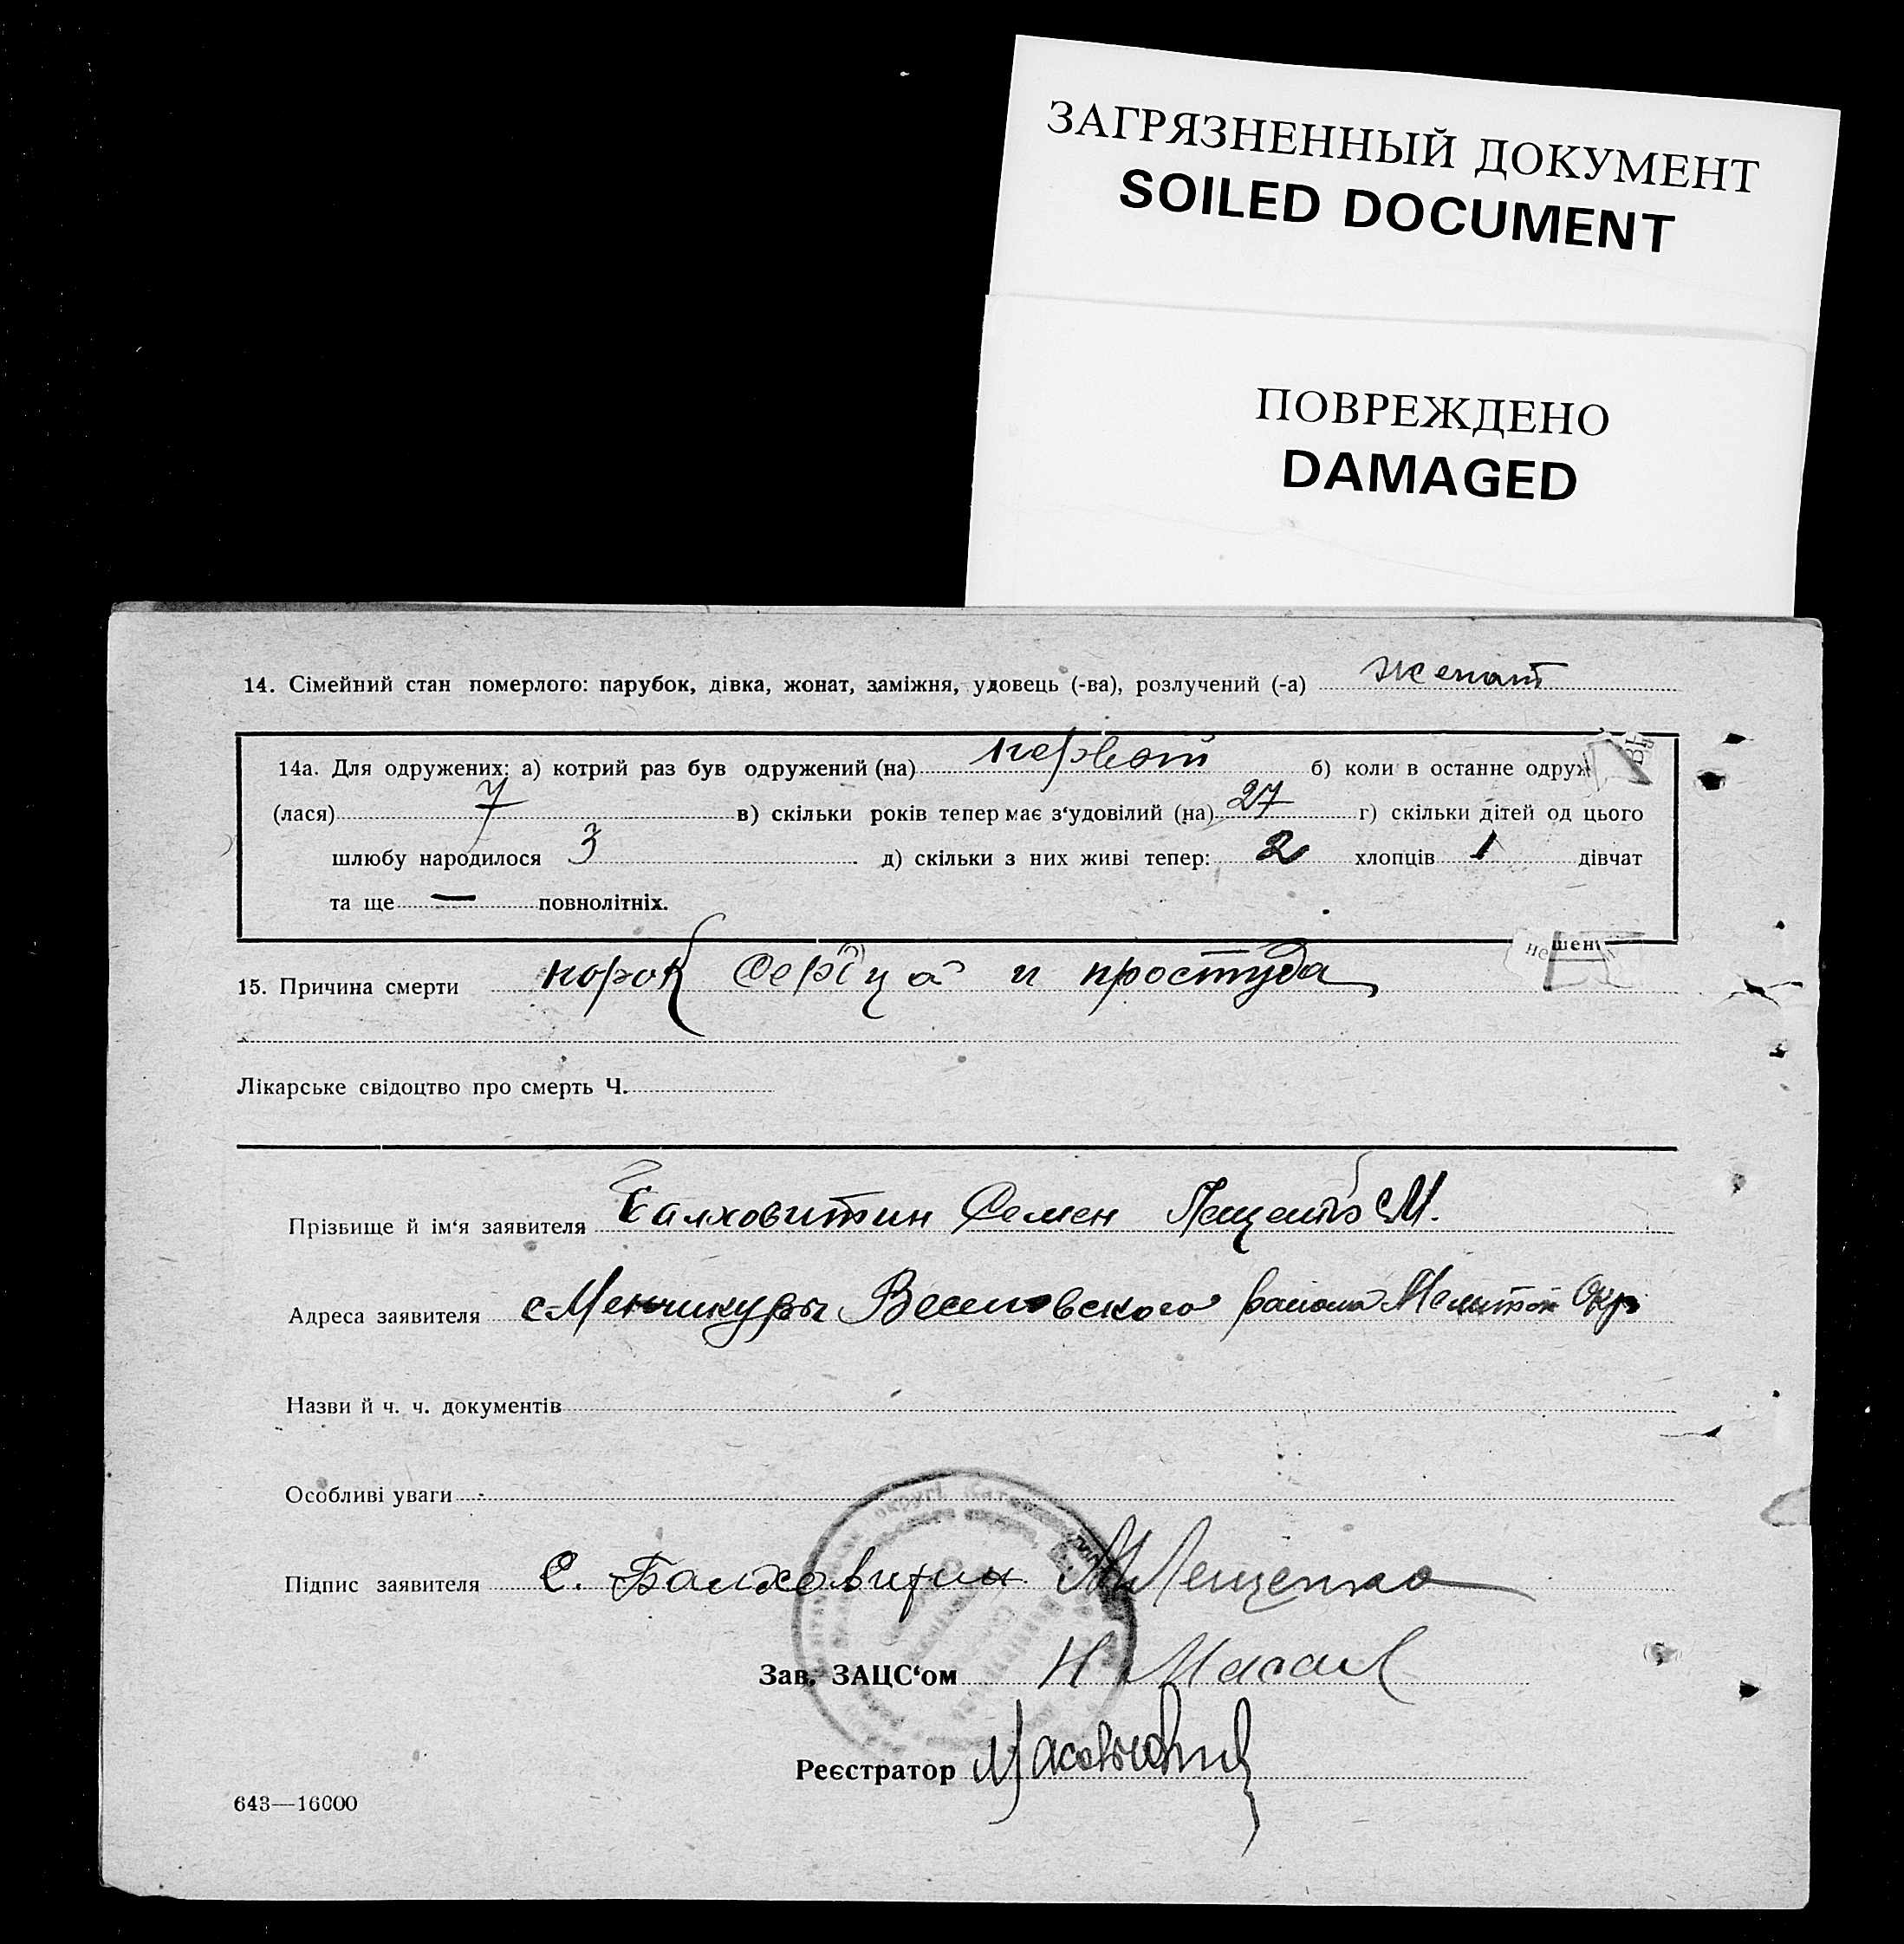 ЗАГРЯЗНЕННЫЙ ДОКУМЕНТ
SOILED DOCUMENT
ПОВРЕЖДЕНО
DAMAGED
14. Сімейний стан померлого: парубок, дівка, жонат, заміжня, удовець (-ва), розлучений (-а) женат
14а. Для одружених: а) котрий раз був одружений (на) первый б) коли в останне одруж
(лася) 7 в) скільки років тепер має з‘удовілий (на) 27 г) скільки дітей од цього
шлюбу народилося 3 д) скільки з них живі тепер: 2 хлопців 1 дівчат
та ще — повнолітніх.
15. Причина смерти порок сердца и простуда
Лікарське свідоцтво про смерть Ч.
Прізвище й ім‘я заявителя Балховитин Семен Лещенко М.
Адреса заявителя с Менчикуры Веселовского района Мелитоп Окр
Назви й ч. ч. документів
Особливі уваги
Підпис заявителя С. Балховитин М Лещенко
Зав. ЗАЦС‘ом Н
Реєстратор
643—16000